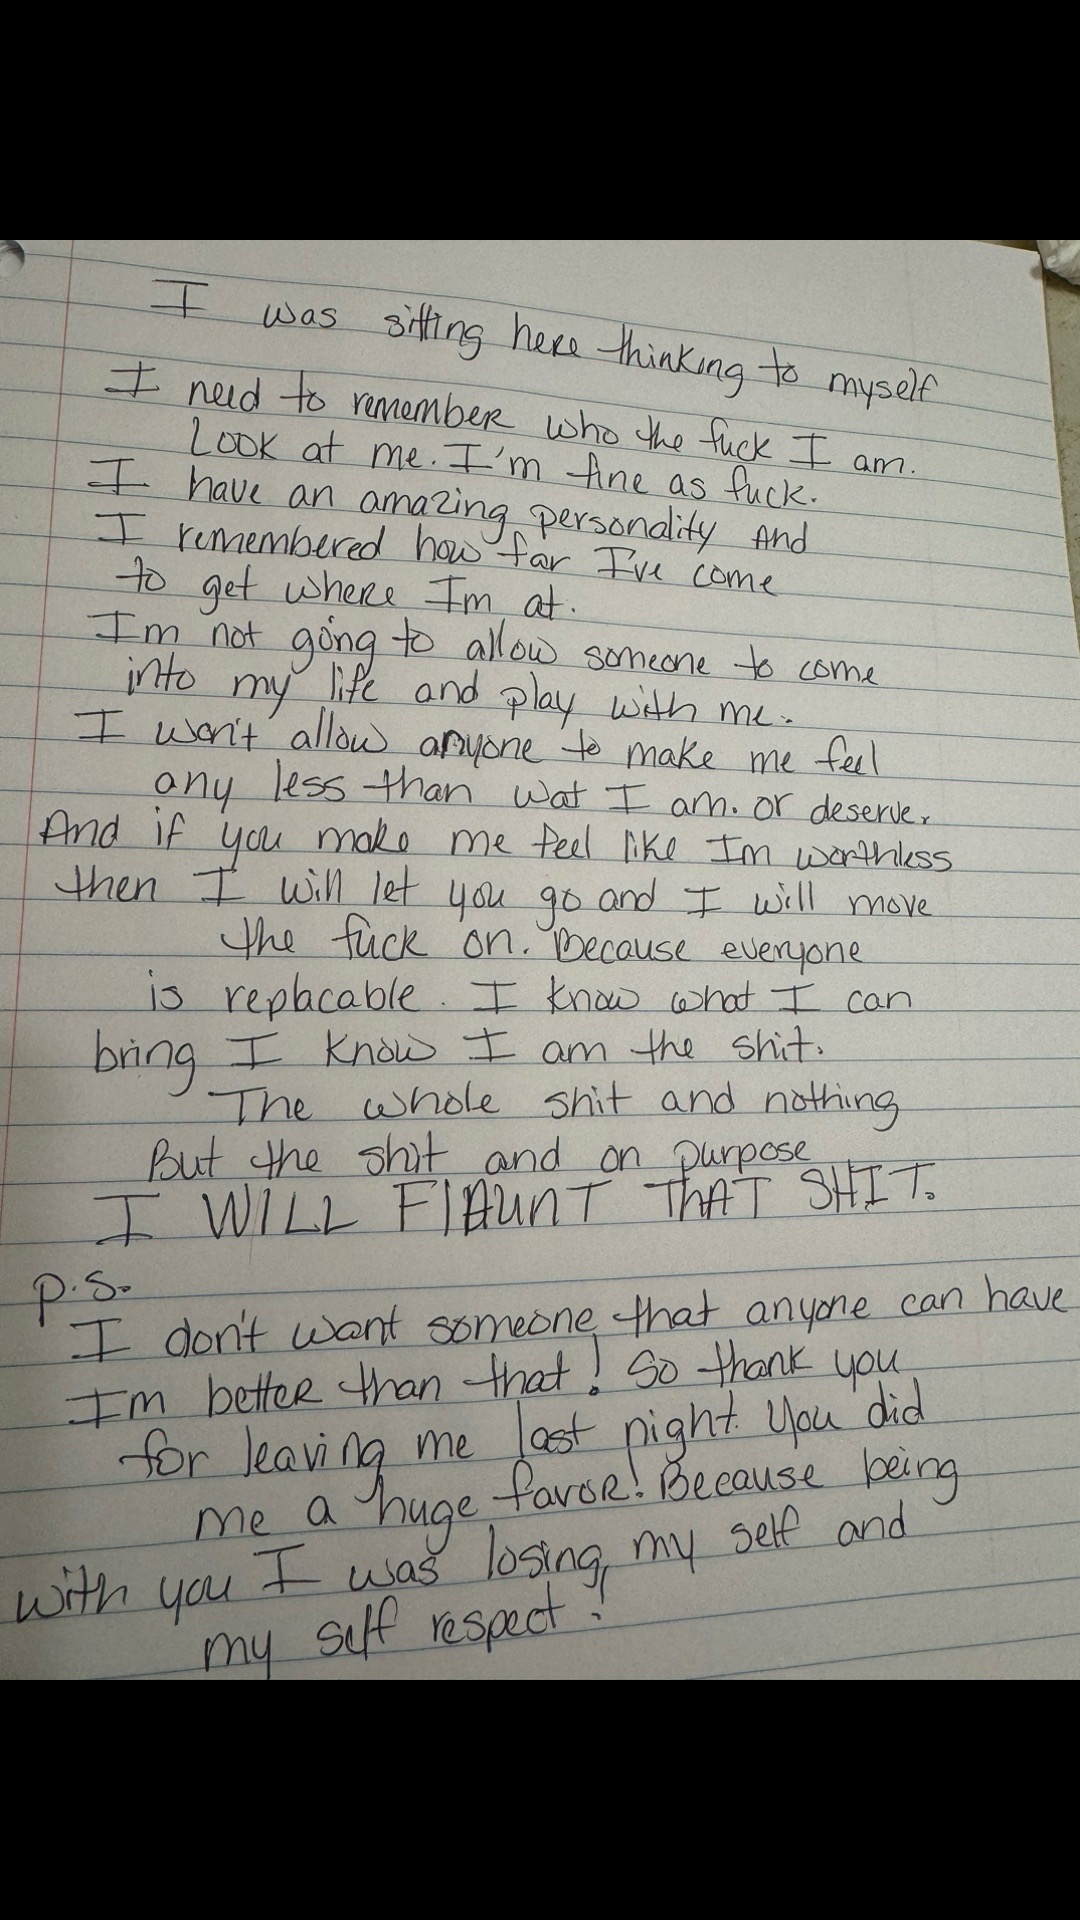 I was sitting here thinking to myself
I need to remember who the fuck I am.
Look at me. I'm fine as fuck.
I have an amazing personality And
I remembered how far I've come
to get where Im at.
Im not going to allow someone to come
into my life and play with me.
I won't allow anyone to make me feel
any less than wat I am. or deserve.
And if you make me feel like Im worthless
then I will let you go and I will move
the fuck on. Because everyone
is replacable. I know what I can
bring I know I am the shit.
The whole shit and nothing
But the shit and on purpose
I WILL FlAUNT THAT SHIT.
p.s.
I don't want someone that anyone can have
Im better than that! So thank you
for leaving me last night. You did
me a huge favor! Because being
with you I was losing my self and
my self respect!